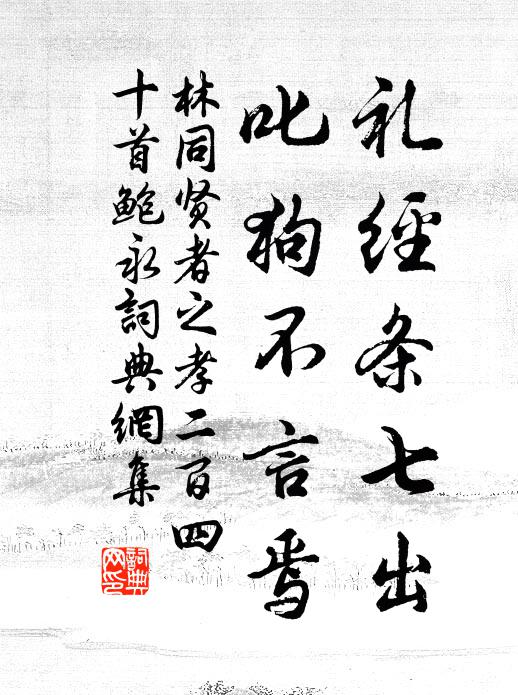 礼經条七出
叱狗不言焉
林同贤者之孝二百四
十首鲍永詞典網集
詞典
网印